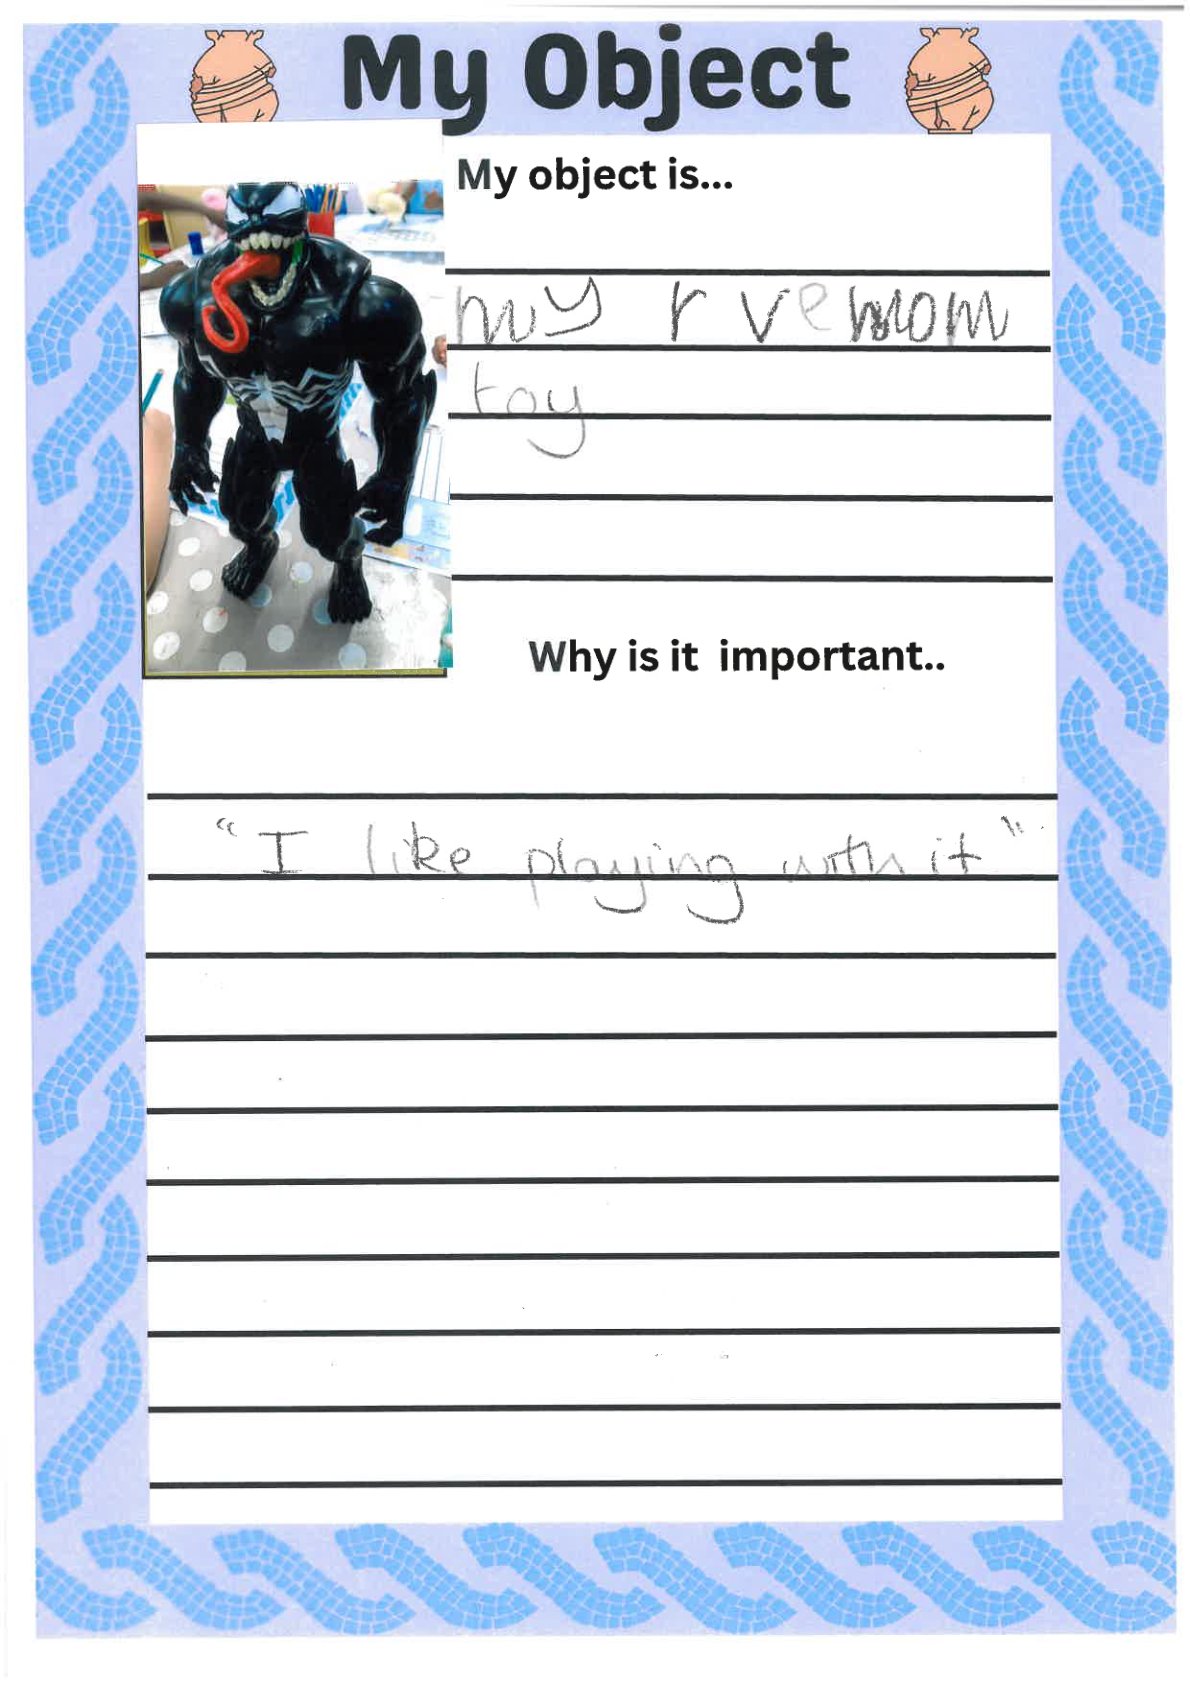 My Object
My object is...
my r vemom
toy
Why is it important..
"I like playing with it"